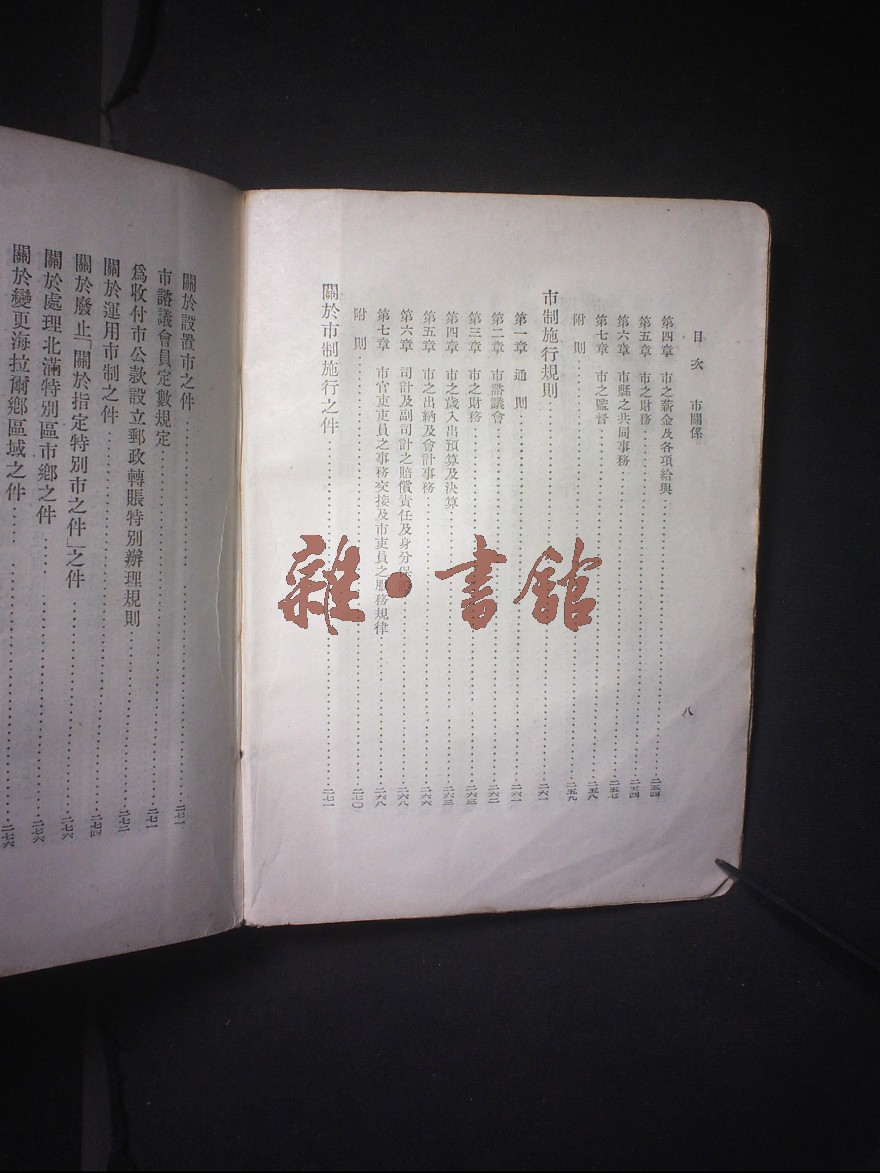 目次　市關係
八
第四章　市之薪金及各項給與……二五四
第五章　市之財務……二五四
第六章　市縣之共同事務……二五七
第七章　市之監督……二五八
附則……二五九
市制施行規則……二六一
第一章　通則……二六一
第二章　市諮議會……二六二
第三章　市之財務……二六三
第四章　市之歲入出預算及決算……二六三
第五章　市之出納及會計事務……二六六
第六章　司計及副司計之賠償責任及身分保……二六八
第七章　市官吏吏員之事務交接及市吏員之服務規律……二六八
附則……二七〇
關於市制施行之件……二七一
關於設置市之件……二七一
市諮議會員定數規定……二七一
爲收付市公款設立郵政轉賬特別辦理規則……二七二
關於運用市制之件……二七四
關於廢止「關於指定特別市之件」之件……二七六
關於處理北滿特別區市鄉之件……二七六
關於變更海拉爾鄉區域之件……二七六
雜·書館